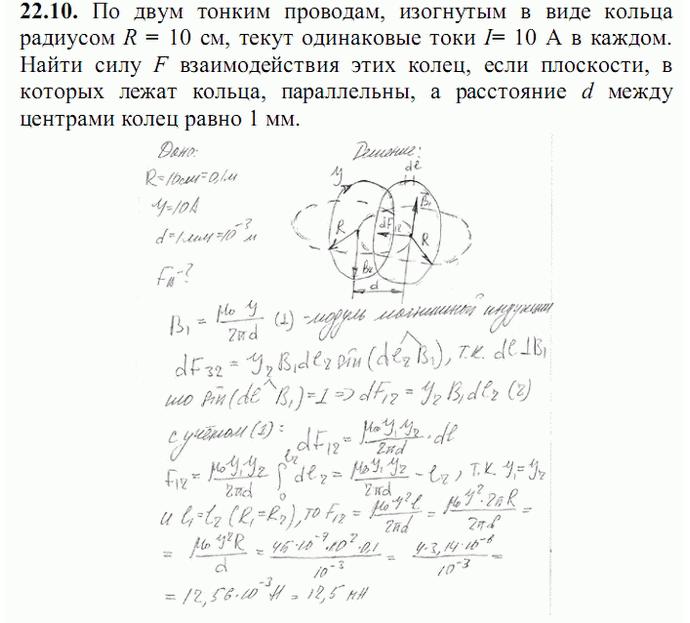 22.10. По двум тонким проводам, изогнутым в виде кольца
радиусом R = 10 см, текут одинаковые токи I= 10 А в каждом.
Найти силу F взаимодействия этих колец, если плоскости, в
которых лежат кольца, параллельны, а расстояние d между
центрами колец равно 1 мм.
Дано: Решение:
R=10см=0,1м
У=10А
d=1мм=10⁻³м
У dl B₁ R dF₁₂ R d
B₁ = μ₀ У / 2πd (1) - модуль магнитной индукции
dF₃₂ = У₂B₁dl₂ sin(dl₂^B₁), т.к. dl⊥B₁
то sin(dl^B₁)=1 => dF₁₂ = У₂ B₁ dl₂ (2)
с учётом (1): dF₁₂ = μ₀У₁У₂ / 2πd · dl
F₁₂ = μ₀У₁У₂ / 2πd ∫₀^l₂ dl₂ = μ₀У₁У₂ / 2πd - l₂, т.к. У₁=У₂
и l₁=l₂ (R₁=R₂), то F₁₂ = μ₀У²l / 2πd = μ₀У²·2πR / 2πd =
= μ₀У²R / d = 4π·10⁻⁷·10²·0,1 / 10⁻³ = 4·3,14·10⁻⁶ / 10⁻³ =
= 12,56·10⁻³Н = 12,5 мН